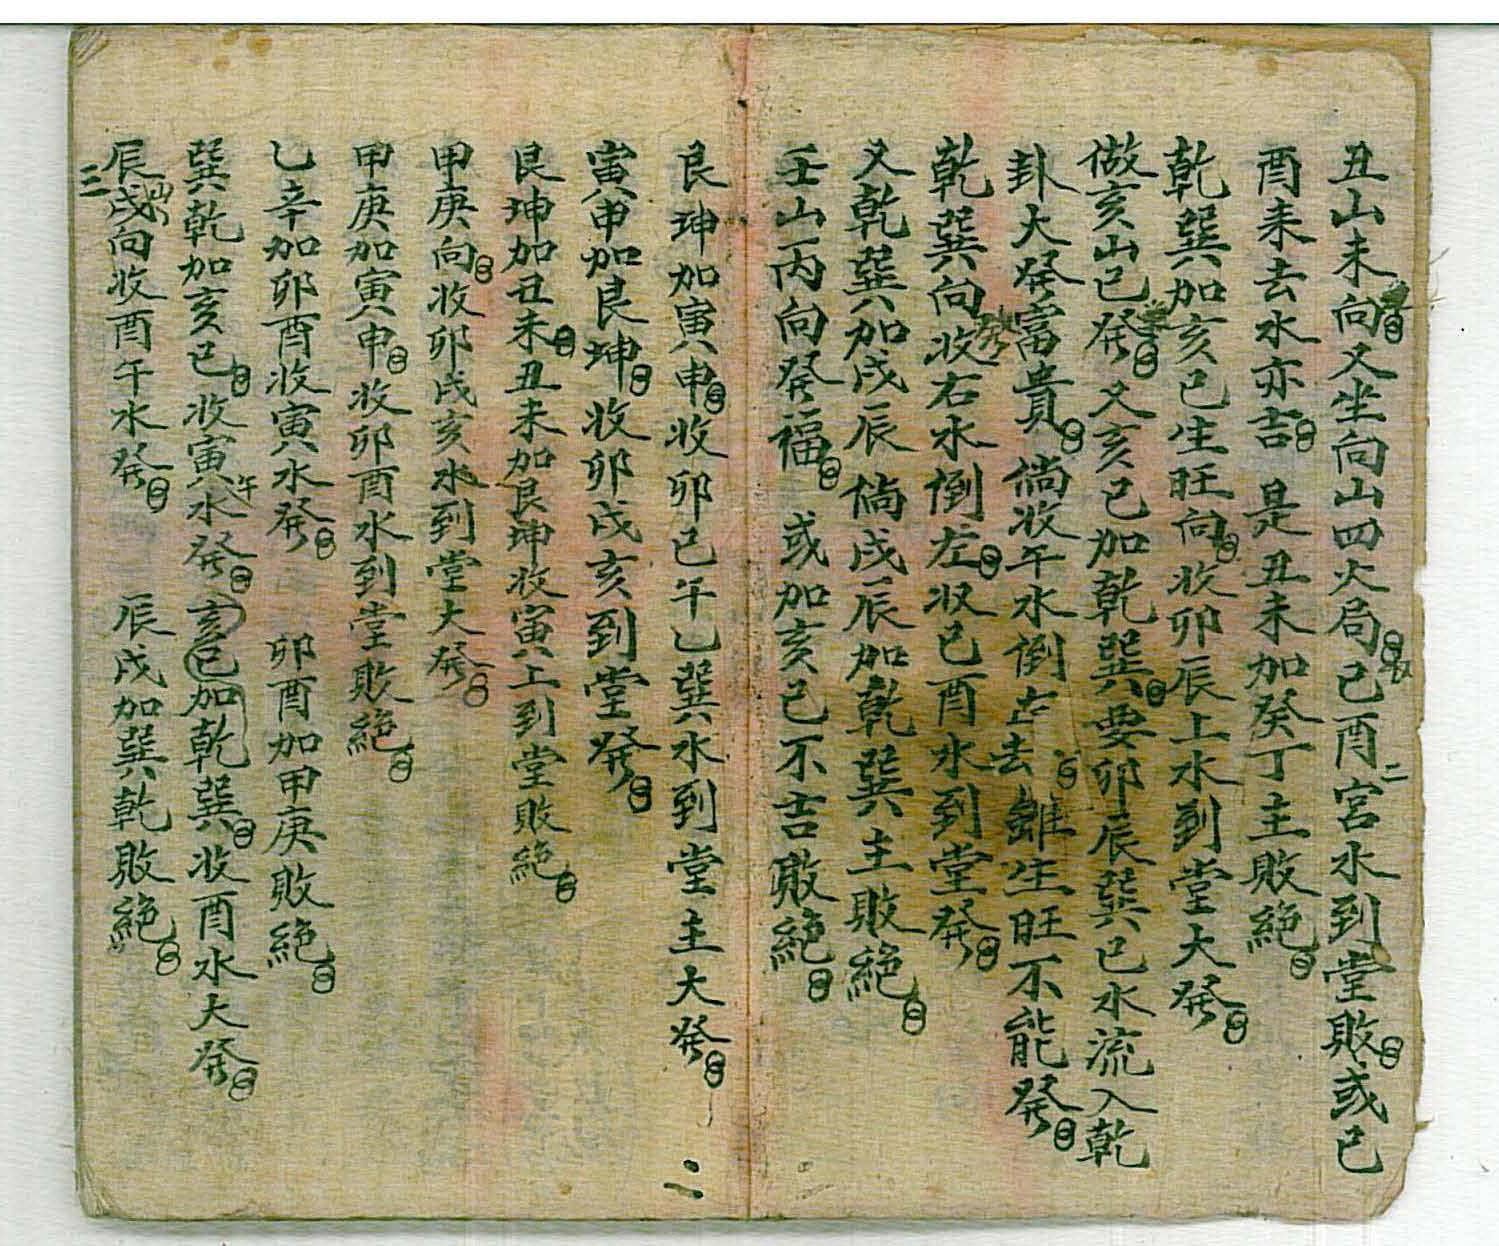 丑山未向又坐向山四火局巳酉宮水到堂敗或巳
酉来去水亦吉 是丑未加癸丁主敗絕
乾巽加亥巳生旺向收卯辰上水到堂大癸
做亥山巳癸又亥巳加乾巽要卯辰巽巳水流入乾
卦大癸富貴倘收午水倒去雖生旺不能癸
乾巽向收右水倒左収巳酉水到堂癸
又乾巽加戌辰倘戌辰加乾巽主敗絕
壬山丙向癸福 或加亥巳不吉敗絕
艮坤加寅申收卯巳午乙巽水到堂主大癸
寅申加艮坤收卯戌亥到堂癸
艮坤加丑未丑未加艮坤收寅上到堂敗絕
甲庚向收卯戌亥水到堂大癸
甲庚加寅申收卯酉水到堂敗絕
乙辛加卯酉收寅水癸 卯酉加甲庚敗絕
巽乾加亥巳收寅午水癸亥巳加乾巽收酉水大癸
辰戌向收酉午水癸 辰戌加巽乾敗絕